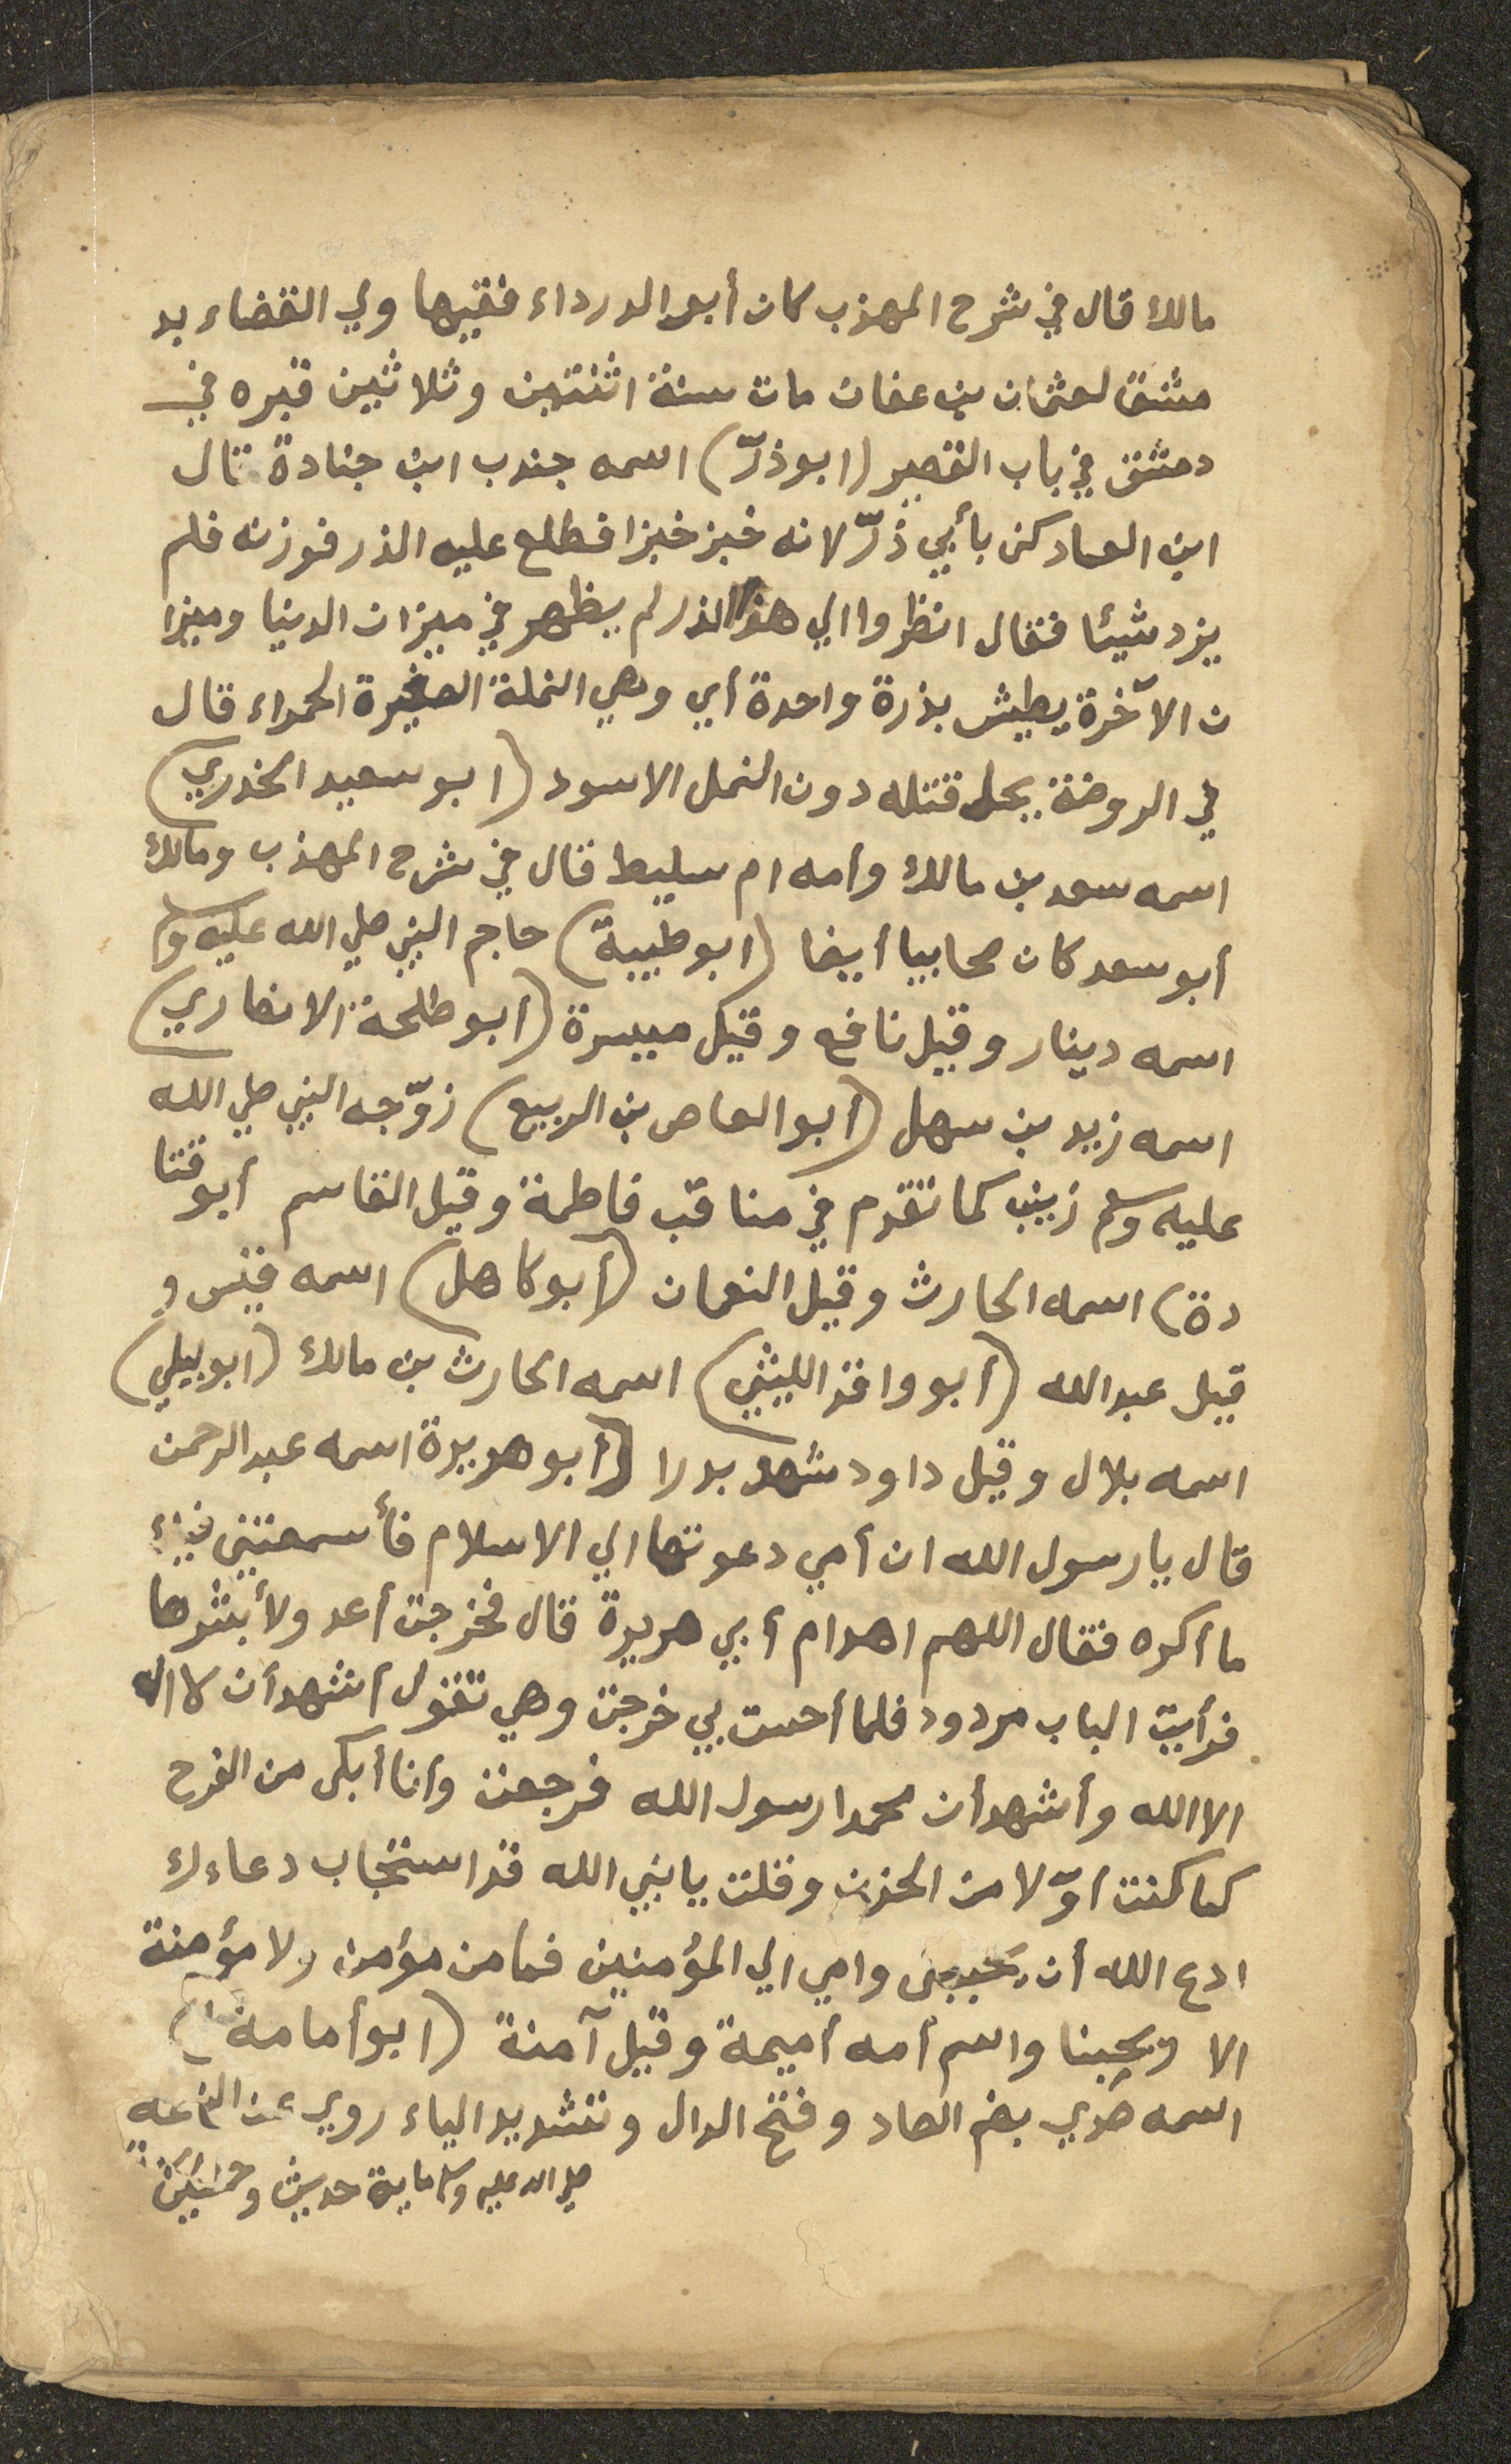 مالك قال في شرح المهذب كان أبو الدرداء فقيها ولي القضاء بد
مشق لعثمان بن عفان مات سنة اثنتين وثلاثين قبره في
دمشق في باب القصير (ابوذرّ) اسمه جندب ابن جنادة قال
ابن العماد كن بأبي ذرّ لانه خبز خبزا فطلع عليه الذر فوزنه فلم
يزد شيئا فقال انظروا الي هذا الذر لم يظهر في ميزان الدنيا وميزا
ن الآخرة يطيش بذرة واحدة أي وهي النملة الصغيرة الحمراء قال
في الروضة يحل قتله دون النمل الاسود (ابو سعيد الخدري)
اسمه سعد بن مالك وأمه ام سليط قال في شرح المهذب ومالك
أبو سعد كان صحابيا أيضا (ابو طيبة) حاجم النبي صلي الله عليه وسلم
اسمه دينار وقيل نافع وقيل ميسرة (ابو طلحة الانصاري)
اسمه زيد بن سهل (أبو العاص بن الربيع) زوّجه النبي صلي الله
عليه وسلم زينب كما تقدم في مناقب فاطمة وقيل القاسم أبو قتا
دة) اسمه الحارث وقيل النعمان (أبو كاهل) اسمه قيس و
قيل عبد الله (أبو واقد الليثي) اسمه الحارث بن مالك (ابو ليلي)
اسمه بلال وقيل داود شهد بدرا (أبو هريرة اسمه عبد الرحمن
قال يا رسول الله ان أمي دعوتها الي الاسلام فأسمعتني فيك
ما أكره فقال اللهم اهد ام أبي هريرة قال فخرجت أعد ولأبشرها
فرأيت الباب مردود فلما أحست بي خرجت وهي تقول أشهد أن لا اله
الا الله وأشهد أن محمدا رسول الله فرجعت وأنا أبكى من الفرح
كما كنت اوّلا من الحزن وقلت يا نبي الله قد استجاب دعاءك
ادع الله أن يحببني وامي الي المؤمنين فما من مؤمن ولا مؤمنة
الا ويحبنا واسم أمه أميمة وقيل آمنة (ابو أمامة)
اسمه صدي بضم الصاد وفتح الدال وتشديد الياء روي عن النبي
صلي الله عليه وسلم ماية حديث وخمسين